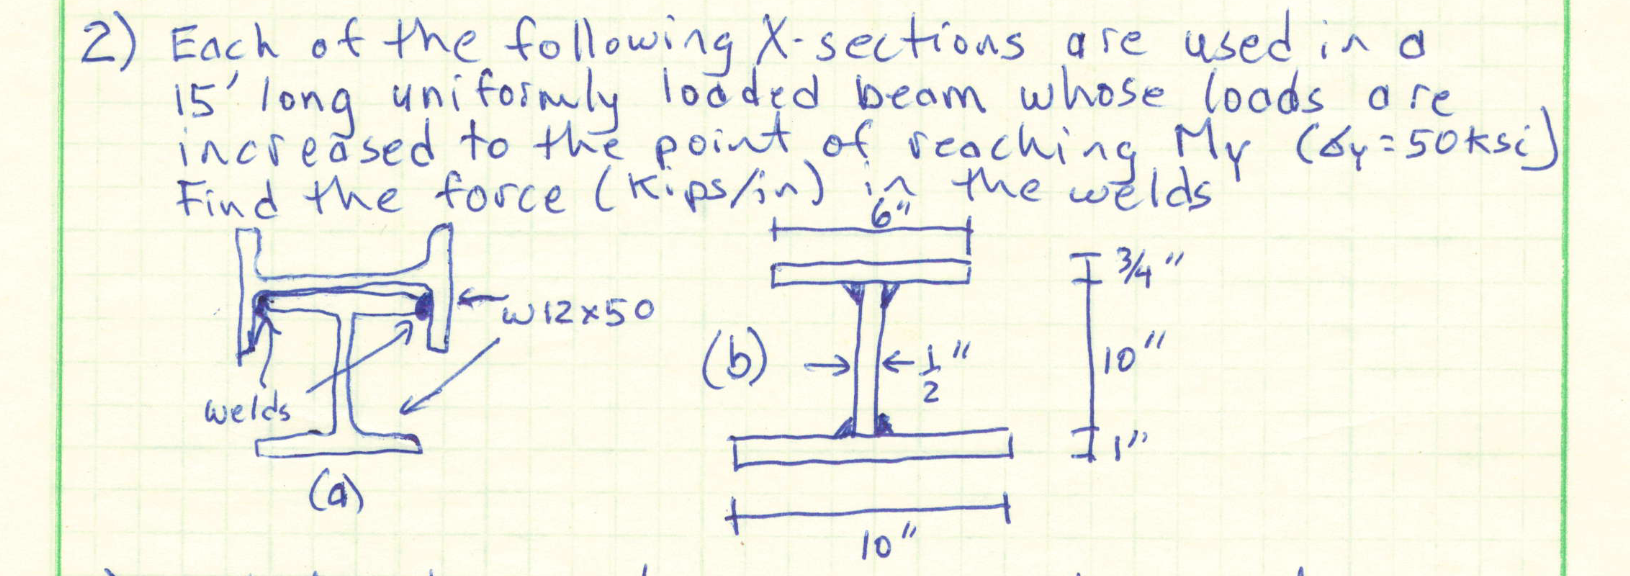 2) Each of the following X-sections are used in a
15' long uniformly loaded beam whose loads are
increased to the point of reaching My (σy=50ksi)
Find the force (Kips/in) in the welds
6"
3/4"
W12x50
(b)
1/2"
10"
welds
1"
(a)
10"